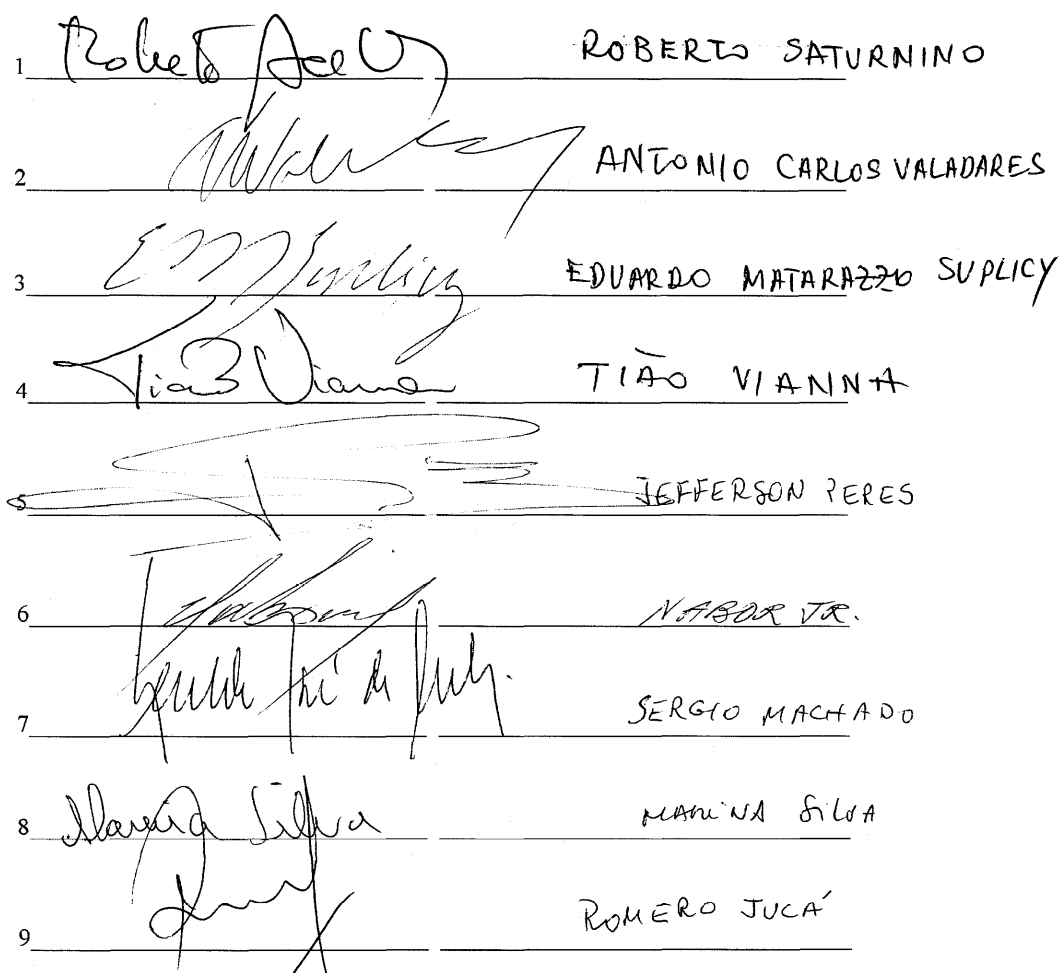 1 Roberto ROBERTO SATURNINO
2 ANTONIO CARLOS VALADARES
3 Suplicy EDUARDO MATARAZZO SUPLICY
4 Tião Viana TIÃO VIANNA
5 JEFFERSON PERES
6 NABOR JR.
7 SERGIO MACHADO
8 Marina Silva MARINA SILVA
9 ROMERO JUCÁ